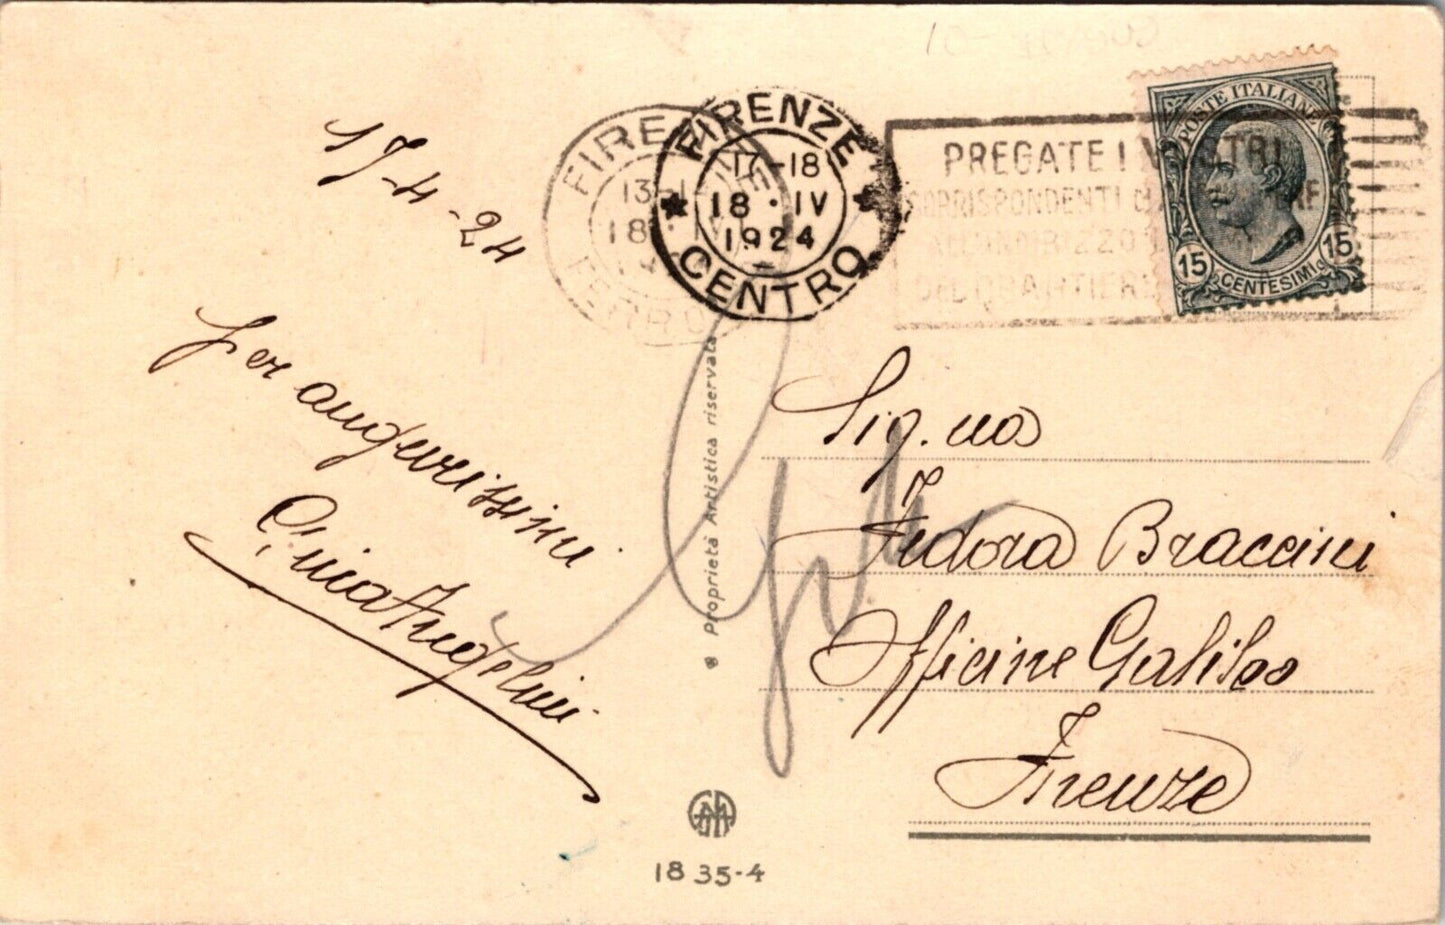 17-4-24
Per augurissimi
Gina Angelini
FIRENZE
17-18
18·IV
1924
CENTRO
FIRENZE
13-1
18·IV
PREGATE I VOSTRI
CORRISPONDENTI DI
ALL'INDIRIZZO
DEL QUARTIERE
POSTE ITALIANE
15
15
CENTESIMI
Proprietà Artistica riservata
Sig.na
Fedora Braccini
Officine Galileo
Firenze
1835-4